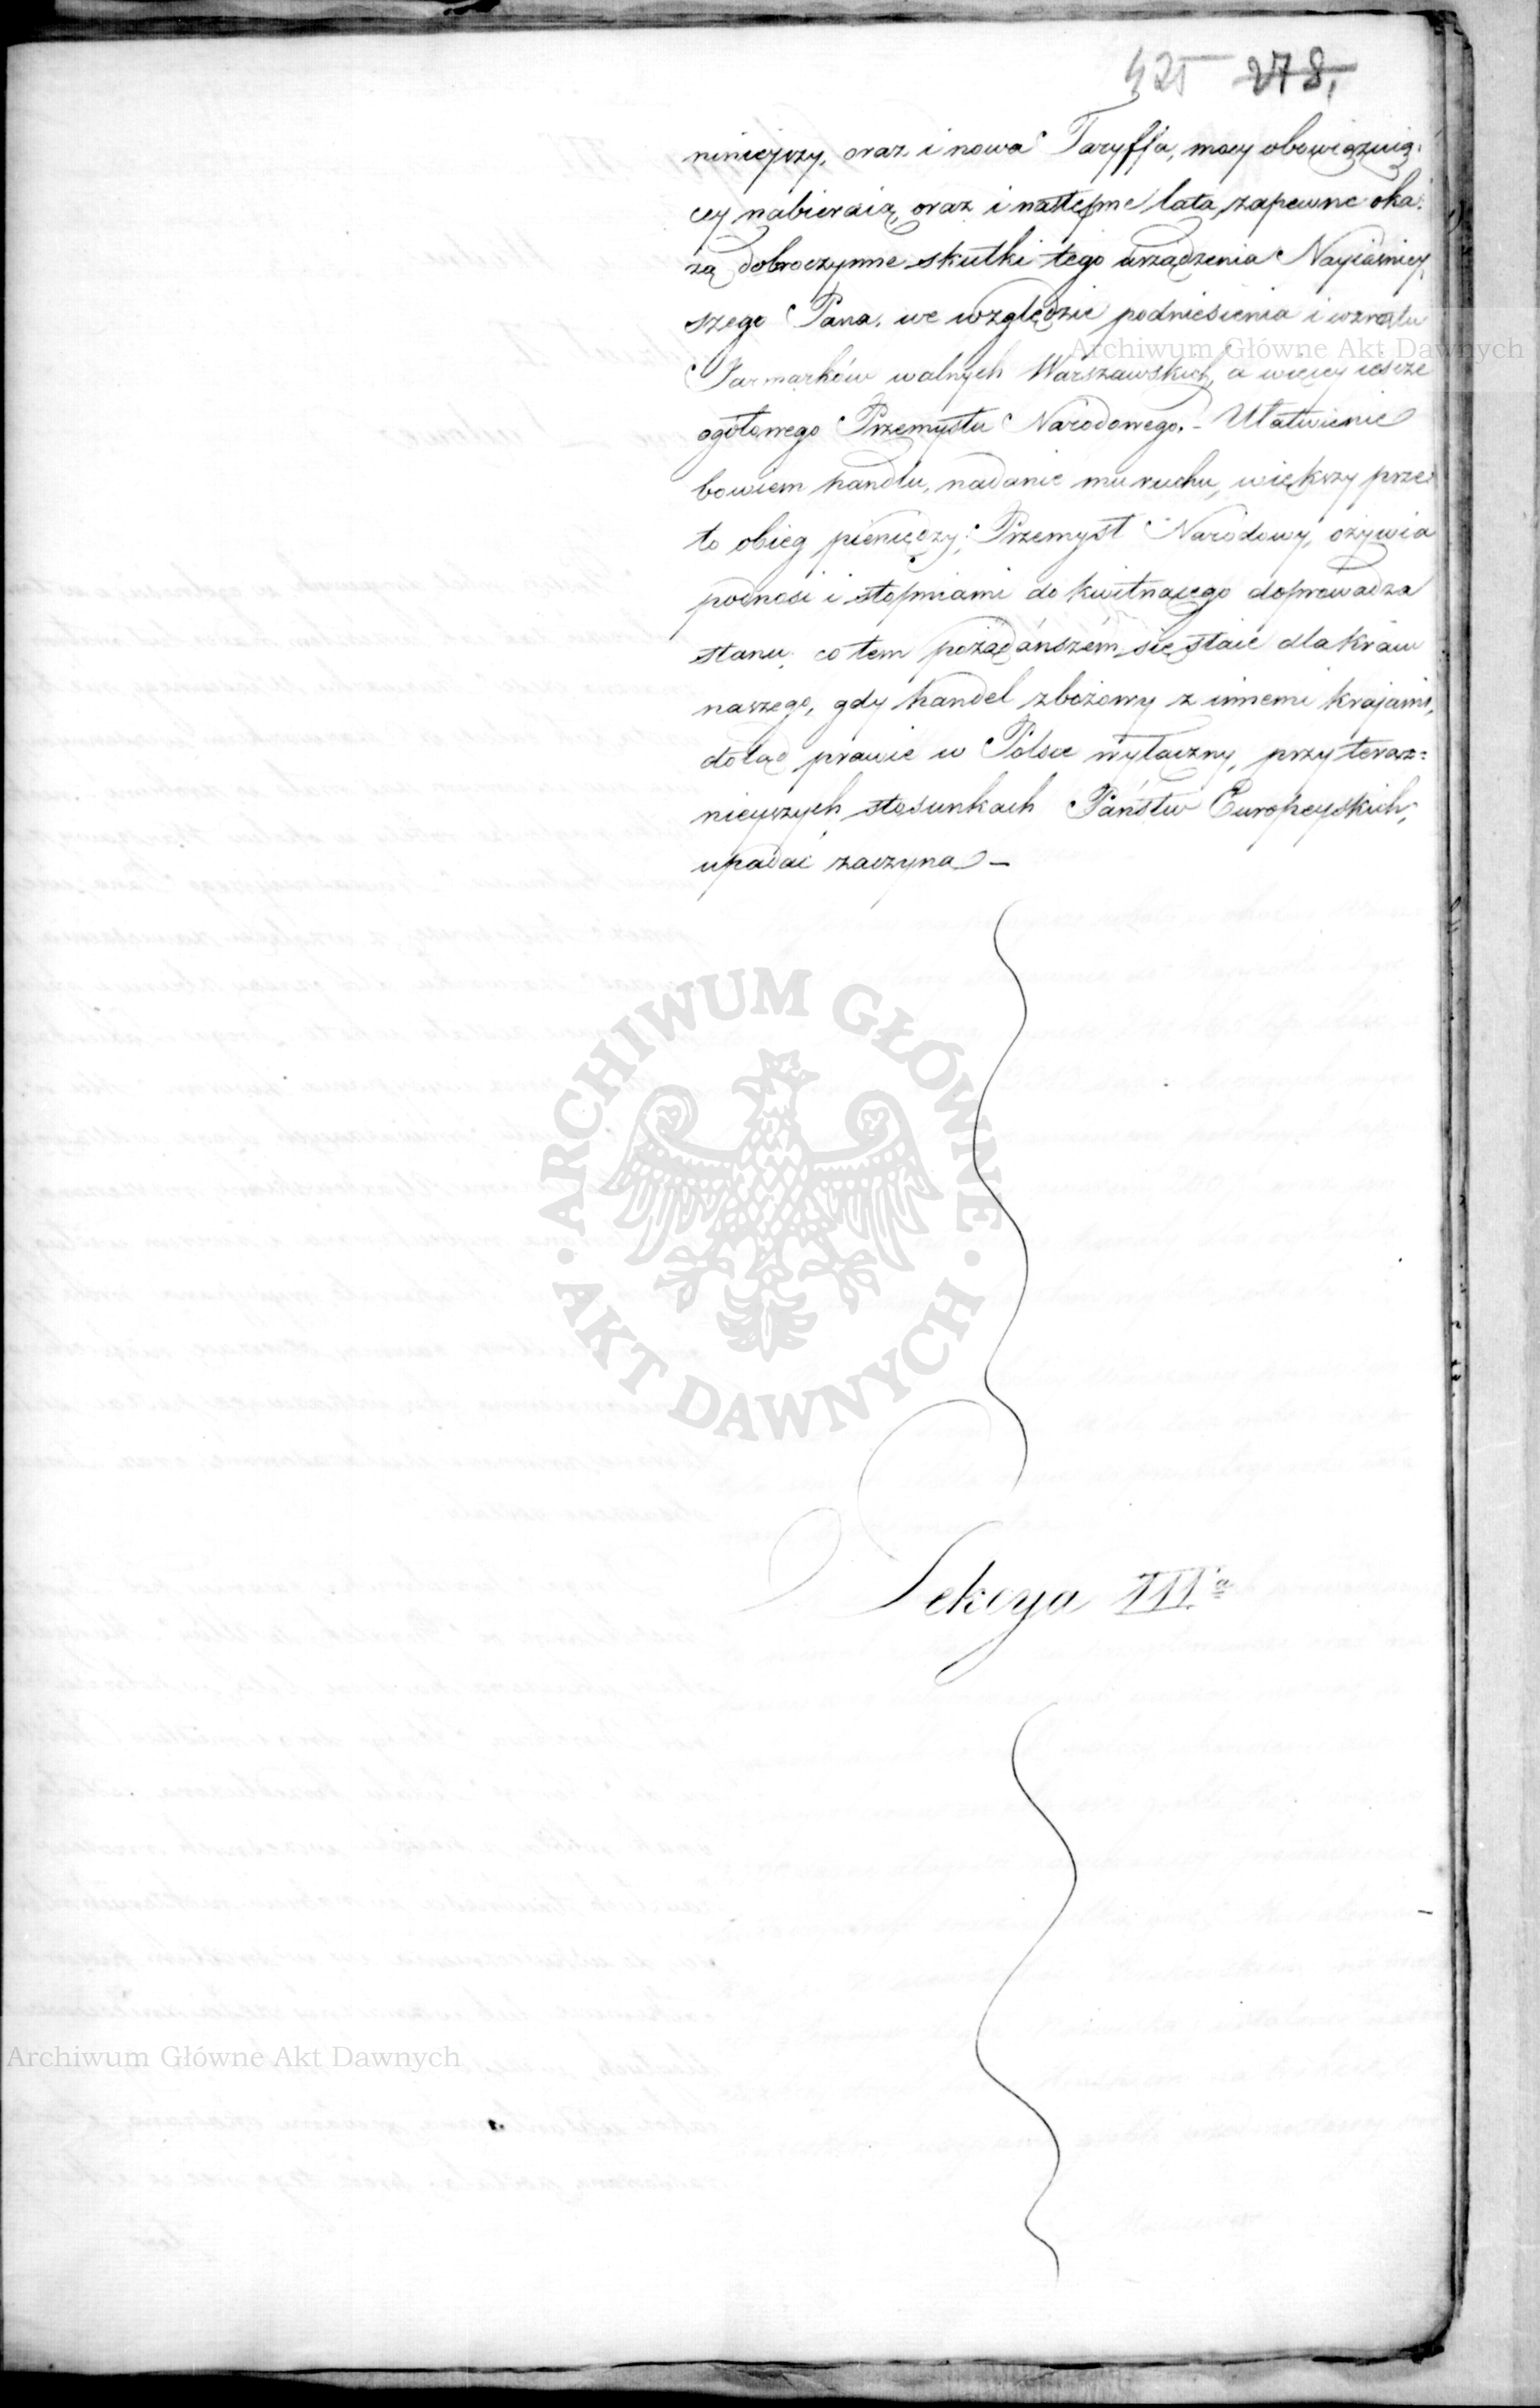 425 278.
ninieyszy, oraz i nowa Taryffa, mocy obowięzuią:
cey nabieraią, oraz i następne lata, zapewne oka:
żą dobroczynne skutki tego urządzenia Nayiaśniey:
szego Pana, we względzie podniesienia i wzrostu
Jarmarków walnych Warszawskich, a więcey iescze
ogółowego Przemysłu Narodowego. – Ułatwienie
bowiem handlu, nadanie mu ruchu, większy prze
to obieg pieniędzy; Przemysł Narodowy, ożywia
podnosi i stopniami do kwitnącego doprowadza
stanu; co tem pożądańszém się staie dla kraiu
naszego, gdy handel zbożowy z innemi krajami,
dotąd prawie w Polsce wyłączny, przy teraz=
nieyszych stosunkach Państw Europeyskich,
upadać zaczyna –
Sekcya III<sup>a</sup>
ARCHIWUM GŁÓWNE
AKT DAWNYCH
Archiwum Główne Akt Dawnych
Archiwum Główne Akt Dawnych